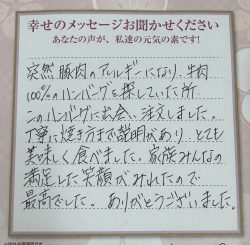 幸せのメッセージお聞かせください
あなたの声が、私達の元気の素です!
突然豚肉のアレルギーになり、牛肉
100%のハンバーグを探していた所、
このハンバーグに出会、注文しました。
丁寧に焼き方まで説明があり、とても
美味しく食べました。家族みんなの
満足した笑顔がみれたので
最高でした。ありがとうございました。